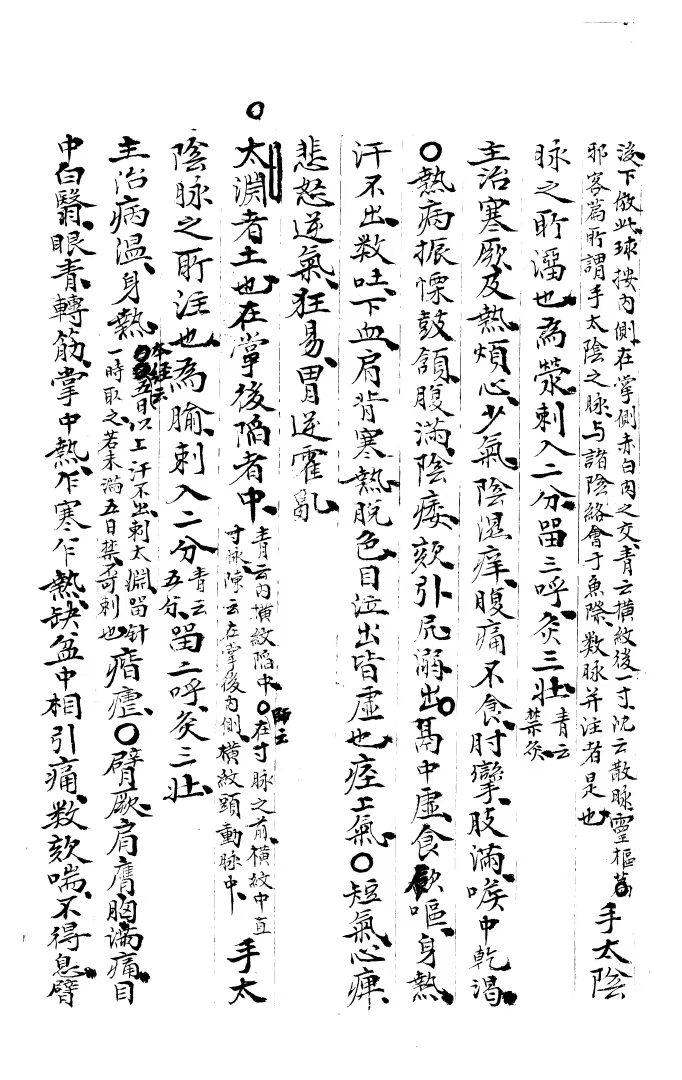 後下倣此、球按內側在掌側赤白肉之交、青云橫紋後一寸、沈云散脉、靈樞篇
邪客篇所謂手太陰之脉、与諸陰絡會于魚際、数脉并注者是也、手太陰
脉之所溜也、為滎、刺入二分、畱三呼、灸三壯、青云
禁灸
主治寒厥及熱、煩心、少氣、陰濕痒、腹痛不食、肘攣、肢滿、喉中乾渴、
〇熱病振慄鼓頷、腹滿、陰痿、欬引尻、溺出、〇鬲中虛、食飲嘔、身熱、
汗不出、数吐、下血、肩背寒熱、脫色、目泣出、皆虛也、痓上氣、〇短氣、心痺、
悲怒逆氣、狂易、胃逆霍亂
〇
太淵者土也、在掌後陷者中、青云內橫紋陷中、〇師云在寸脉之前、橫紋中直
寸脉、陳云在掌後內側、橫紋頭動脉中、手太
陰脉之所注也、為腧、刺入二分、青云
五分、畱二呼、灸三壯、
主治病溫、身熱、本経云
五日以上、汗不出、刺太淵、畱針
一時取之、若未滿五日、禁不可刺也、痦瘧、〇臂厥、肩膺胸滿痛、目
中白翳、眼青、轉筋、掌中熱、乍寒乍熱、缺盆中相引痛、数欬喘、不得息、臂